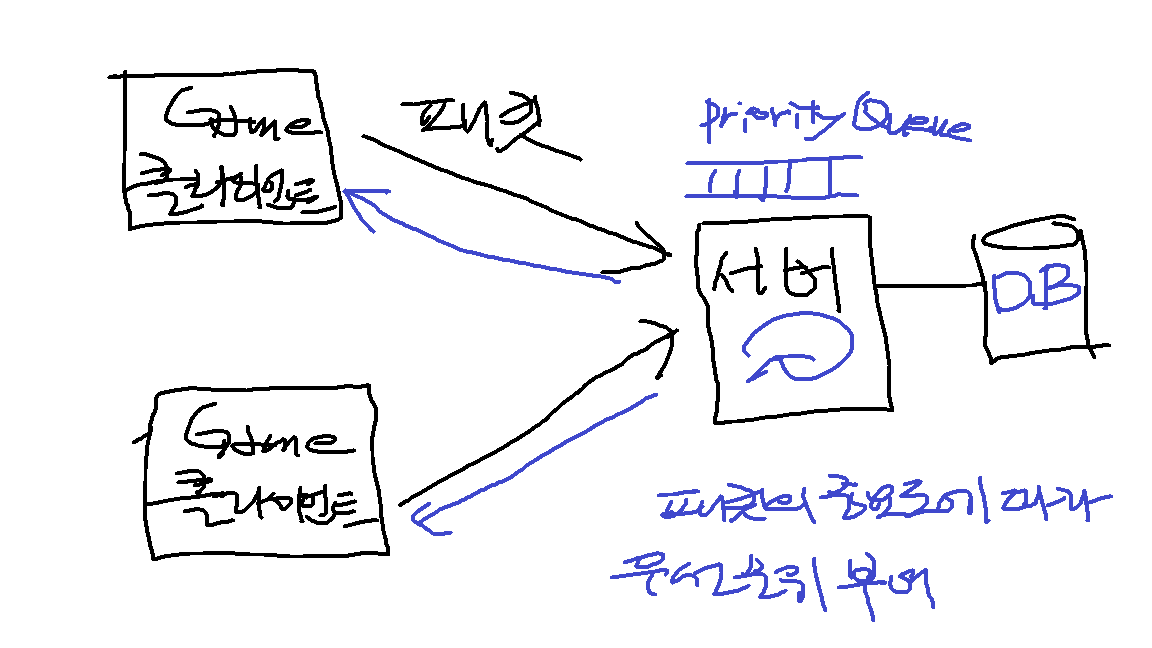 Game
클라이언트
패킷
Priority Queue
서버
DB
Game
클라이언트
패킷의 중요도에 따라
우선순위 부여